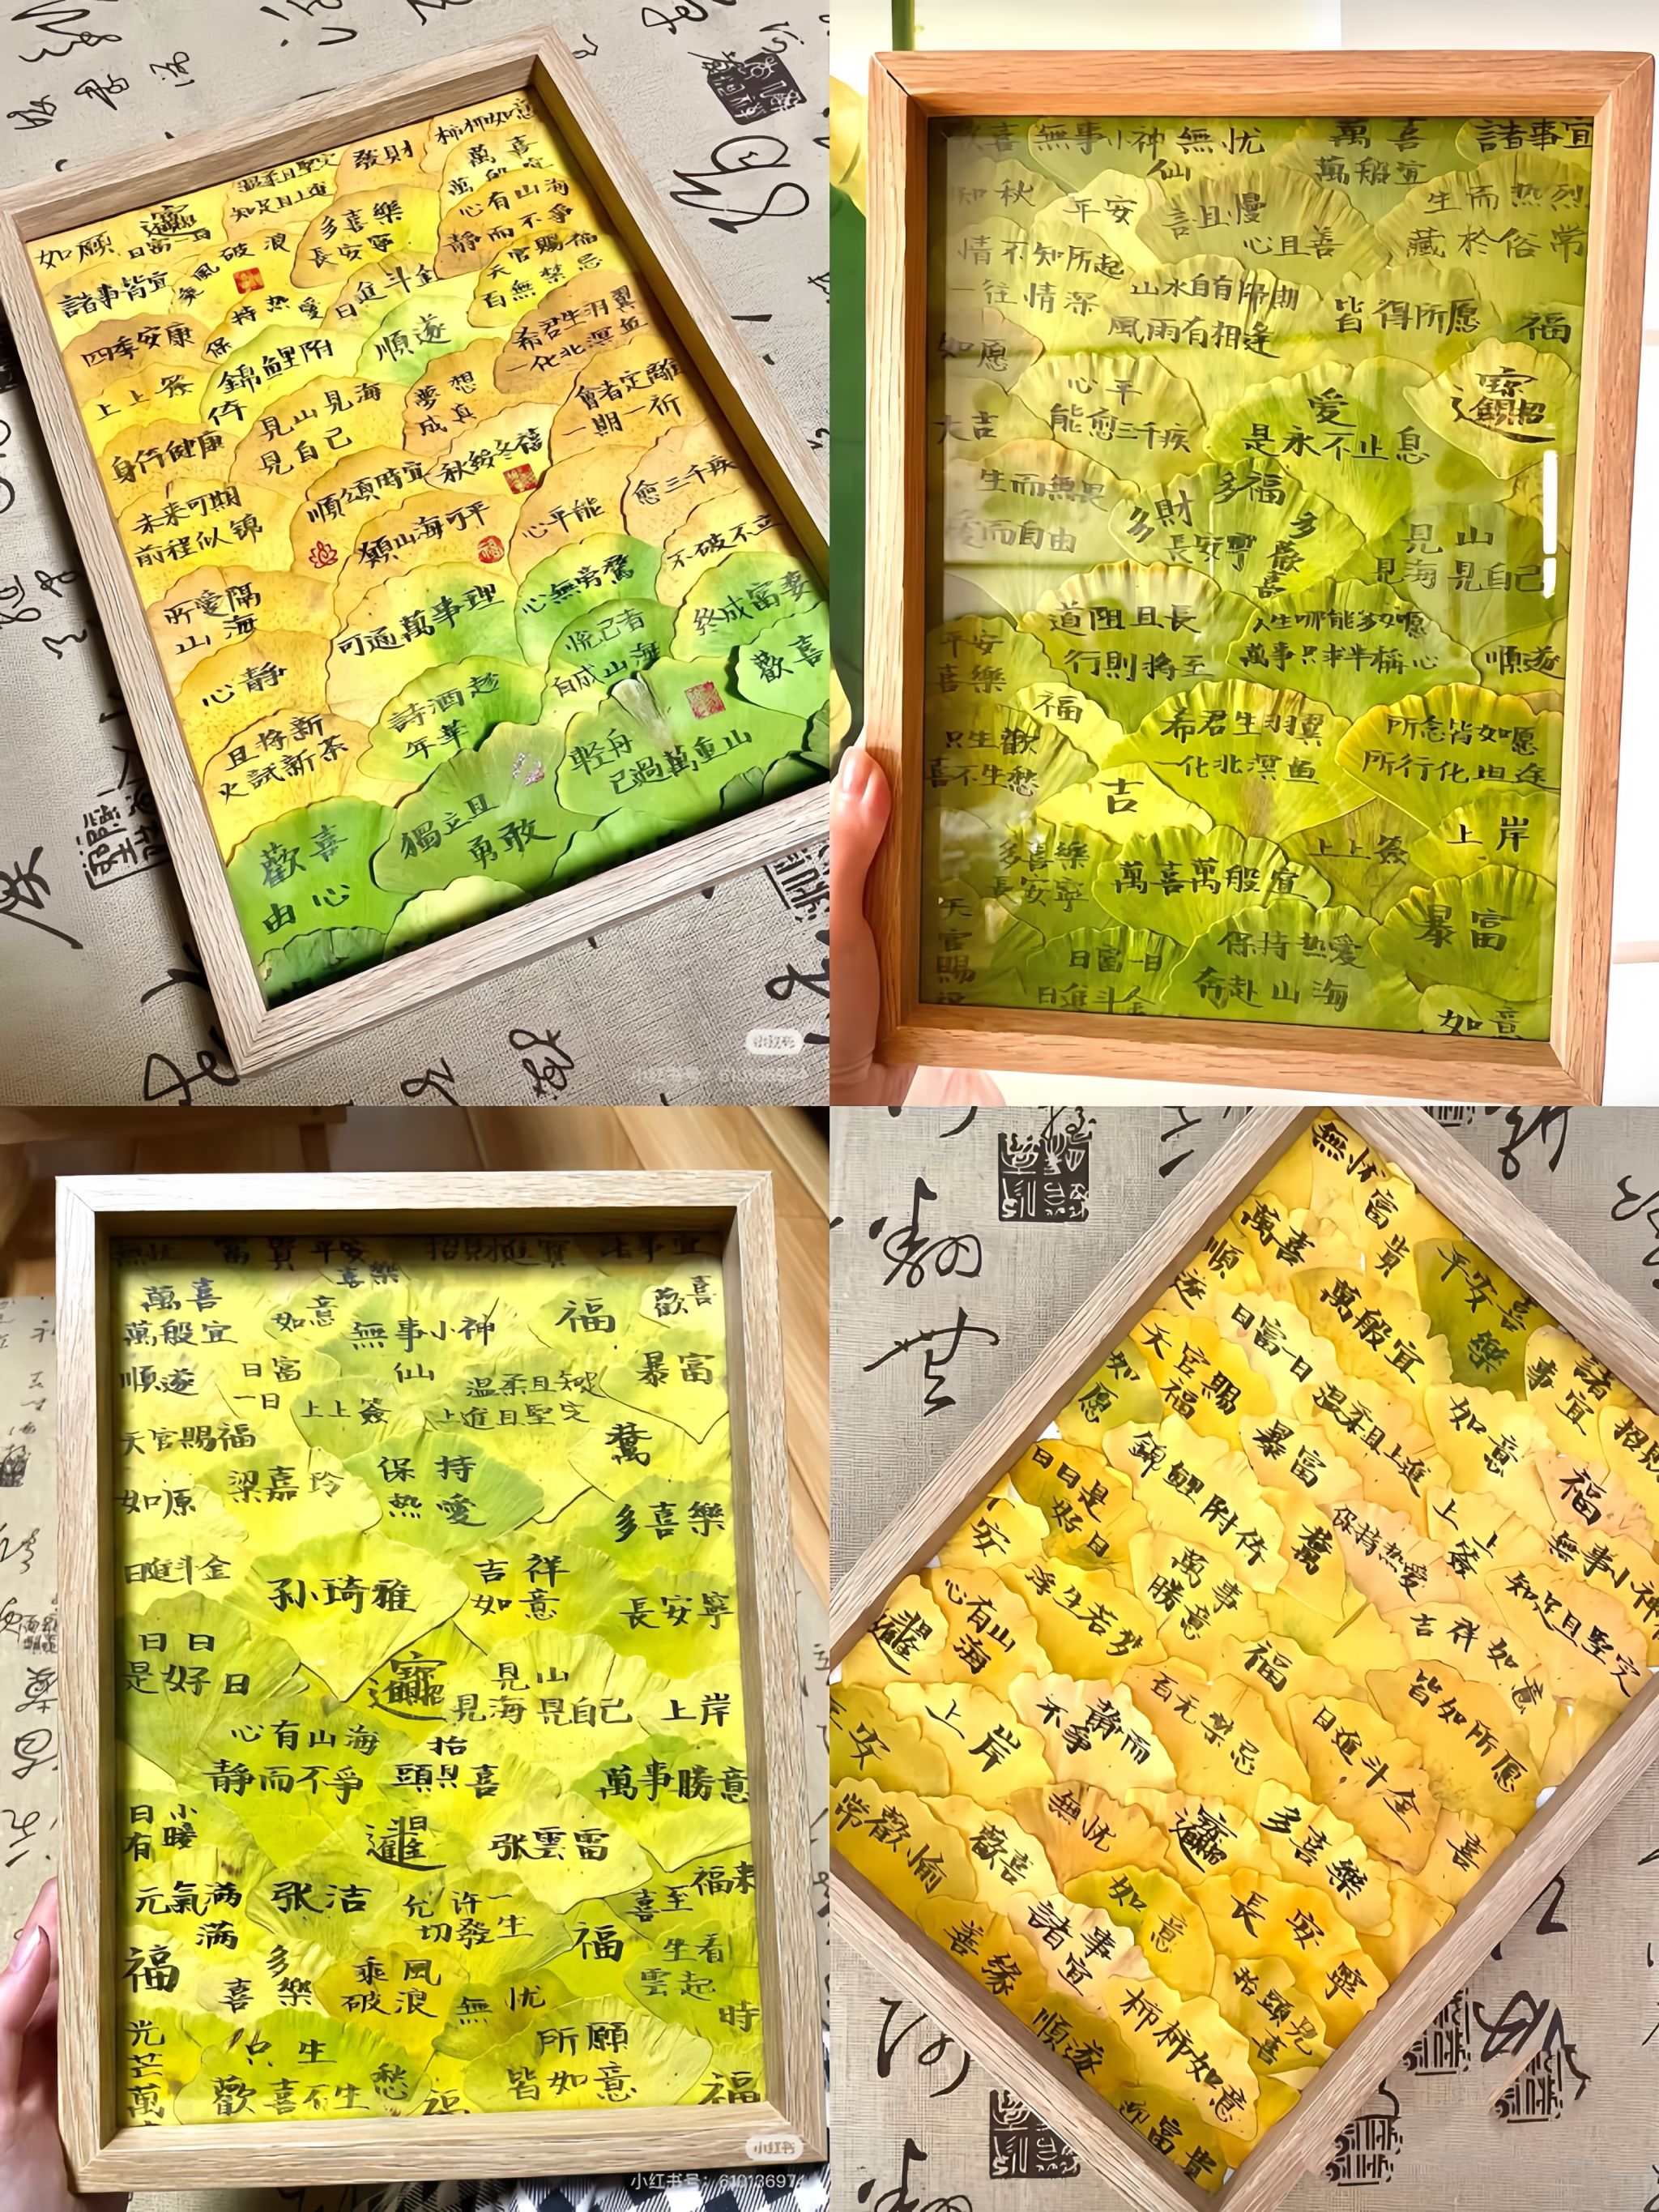 柿柿如意
發財
萬喜
萬般宜
溫柔且堅定
知足且上進
多喜樂
長安寧
心有山海
靜而不爭
如願
日富一日
乘風破浪
天官賜福
百無禁忌
諸事皆宜
日進斗金
保持热愛
順遂
希君生羽翼
一化北溟魚
四季安康
錦鯉附
倚
上上簽
夢想
成真
會者定離
一期一祈
見山見海
見自己
身体健康
秋綏冬禧
順頌時宜
未来可期
前程似锦
願山海可平
心平能
愈三千疾
不破不立
所愛隔
山海
可通萬事理
心無旁騖
悦己者
自成山海
終成富妻
歡喜
心靜
詩酒趁
年華
且将新
火試新茶
輕舟
已過萬重山
獨立且
勇敢
歡喜
由心
歡喜
無事小神
仙
無忧
萬喜
萬般宜
諸事宜
知秋
年安
言且慢
心且善
生而热烈
藏於俗常
情不知所起
一往情深
山水自有歸期
風雨有相逢
皆得所愿
福
如愿
心平
能愈三千疾
愛
是永不止息
大吉
生而無畏
愛而自由
多財
多福
長安寧
多歡
喜
見山
見海見自己
道阻且長
行則将至
人生哪能多如愿
萬事只求半稱心
順遂
平安
喜樂
福
只生歡
喜不生愁
希君生羽翼
一化北溟鱼
所念皆如愿
所行化坦途
吉
上岸
多喜樂
長安寧
萬喜萬般宜
上上簽
暴富
天官賜
日富一日
日進斗金
保持热愛
奔赴山海
如意
無忧
富貴
平安
喜樂
招財進寶
諸事宜
萬喜
萬般宜
如意
無事小神
仙
福
歡喜
順遂
日富
一日
上上簽
温柔且知足
上進且堅定
暴富
天官賜福
如原
梁嘉玲
保持
热愛
多喜樂
日進斗金
孙琦雅
吉祥
如意
長安寧
日日
是好日
見山
見海見自己
上岸
心有山海
靜而不爭
抬
頭見喜
萬事勝意
日有
小暖
张雲雷
元氣满
满
张洁
允许一
切發生
喜至
福来
福
多
喜樂
乘風
破浪
無忧
福
生看
雲起
時
光芒萬
只生
歡喜不生愁
所願
皆如意
福
福
小红书
小红书号：610136974
無忧
富貴
萬喜
萬般宜
順遂
平安喜
樂
日富一日
天官賜
福
如愿
諸事宜
招財
温柔且上進
如意
暴富
福
錦鯉附倚
日日是
好日
上上簽
保持热愛
無事小神
萬事
勝意
浮生若梦
心有山
海
知足且堅定
吉祥如意
福
皆如所愿
上岸
靜而
不爭
百无禁忌
日進斗金
常歡愉
歡喜
無忧
多喜樂
喜
如意
長安寧
善缘
諸事宜
抬頭見
喜
順遂
柿柿如意
迎富貴